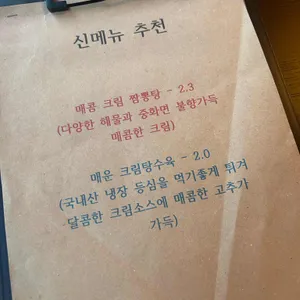 신메뉴 추천
매콤 크림 짬뽕탕 - 2.3
(다양한 해물과 중화면 불향가득
매콤한 크림)
매운 크림탕수육 - 2.0
(국내산 냉장 등심을 먹기좋게 튀겨
달콤한 크림소스에 매콤한 고추가
가득)